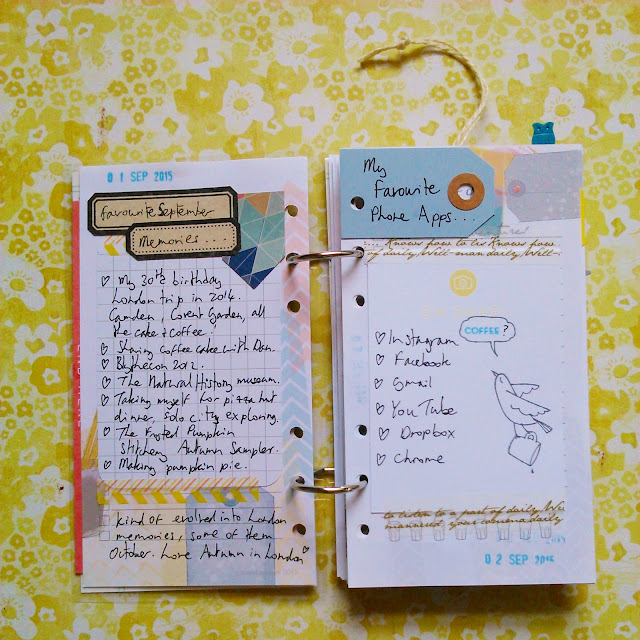 01 SEP 2015
Favourite September
Memories....
My 30th birthday
London trip in 2014.
Camden, Covent Garden, all
the cake & coffee.
Sharing coffee cake with Dan.
Blythecon 2012.
The Natural History museum.
Taking myself for pizza hut
dinner, solo city exploring.
The Frosted Pumpkin
Stitchery Autumn Sampler.
Making pumpkin pie.
kind of evolved into London
memories, some of them
October. Love Autumn in London
My
Favourite
Phone Apps...
Knows how to lis Knows how
of daily. Well-man daily. Well-
COFFEE?
Instagram
Facebook
Gmail
YouTube
Dropbox
Chrome
to listen to a part of daily. We
daily
02 SEP 2015